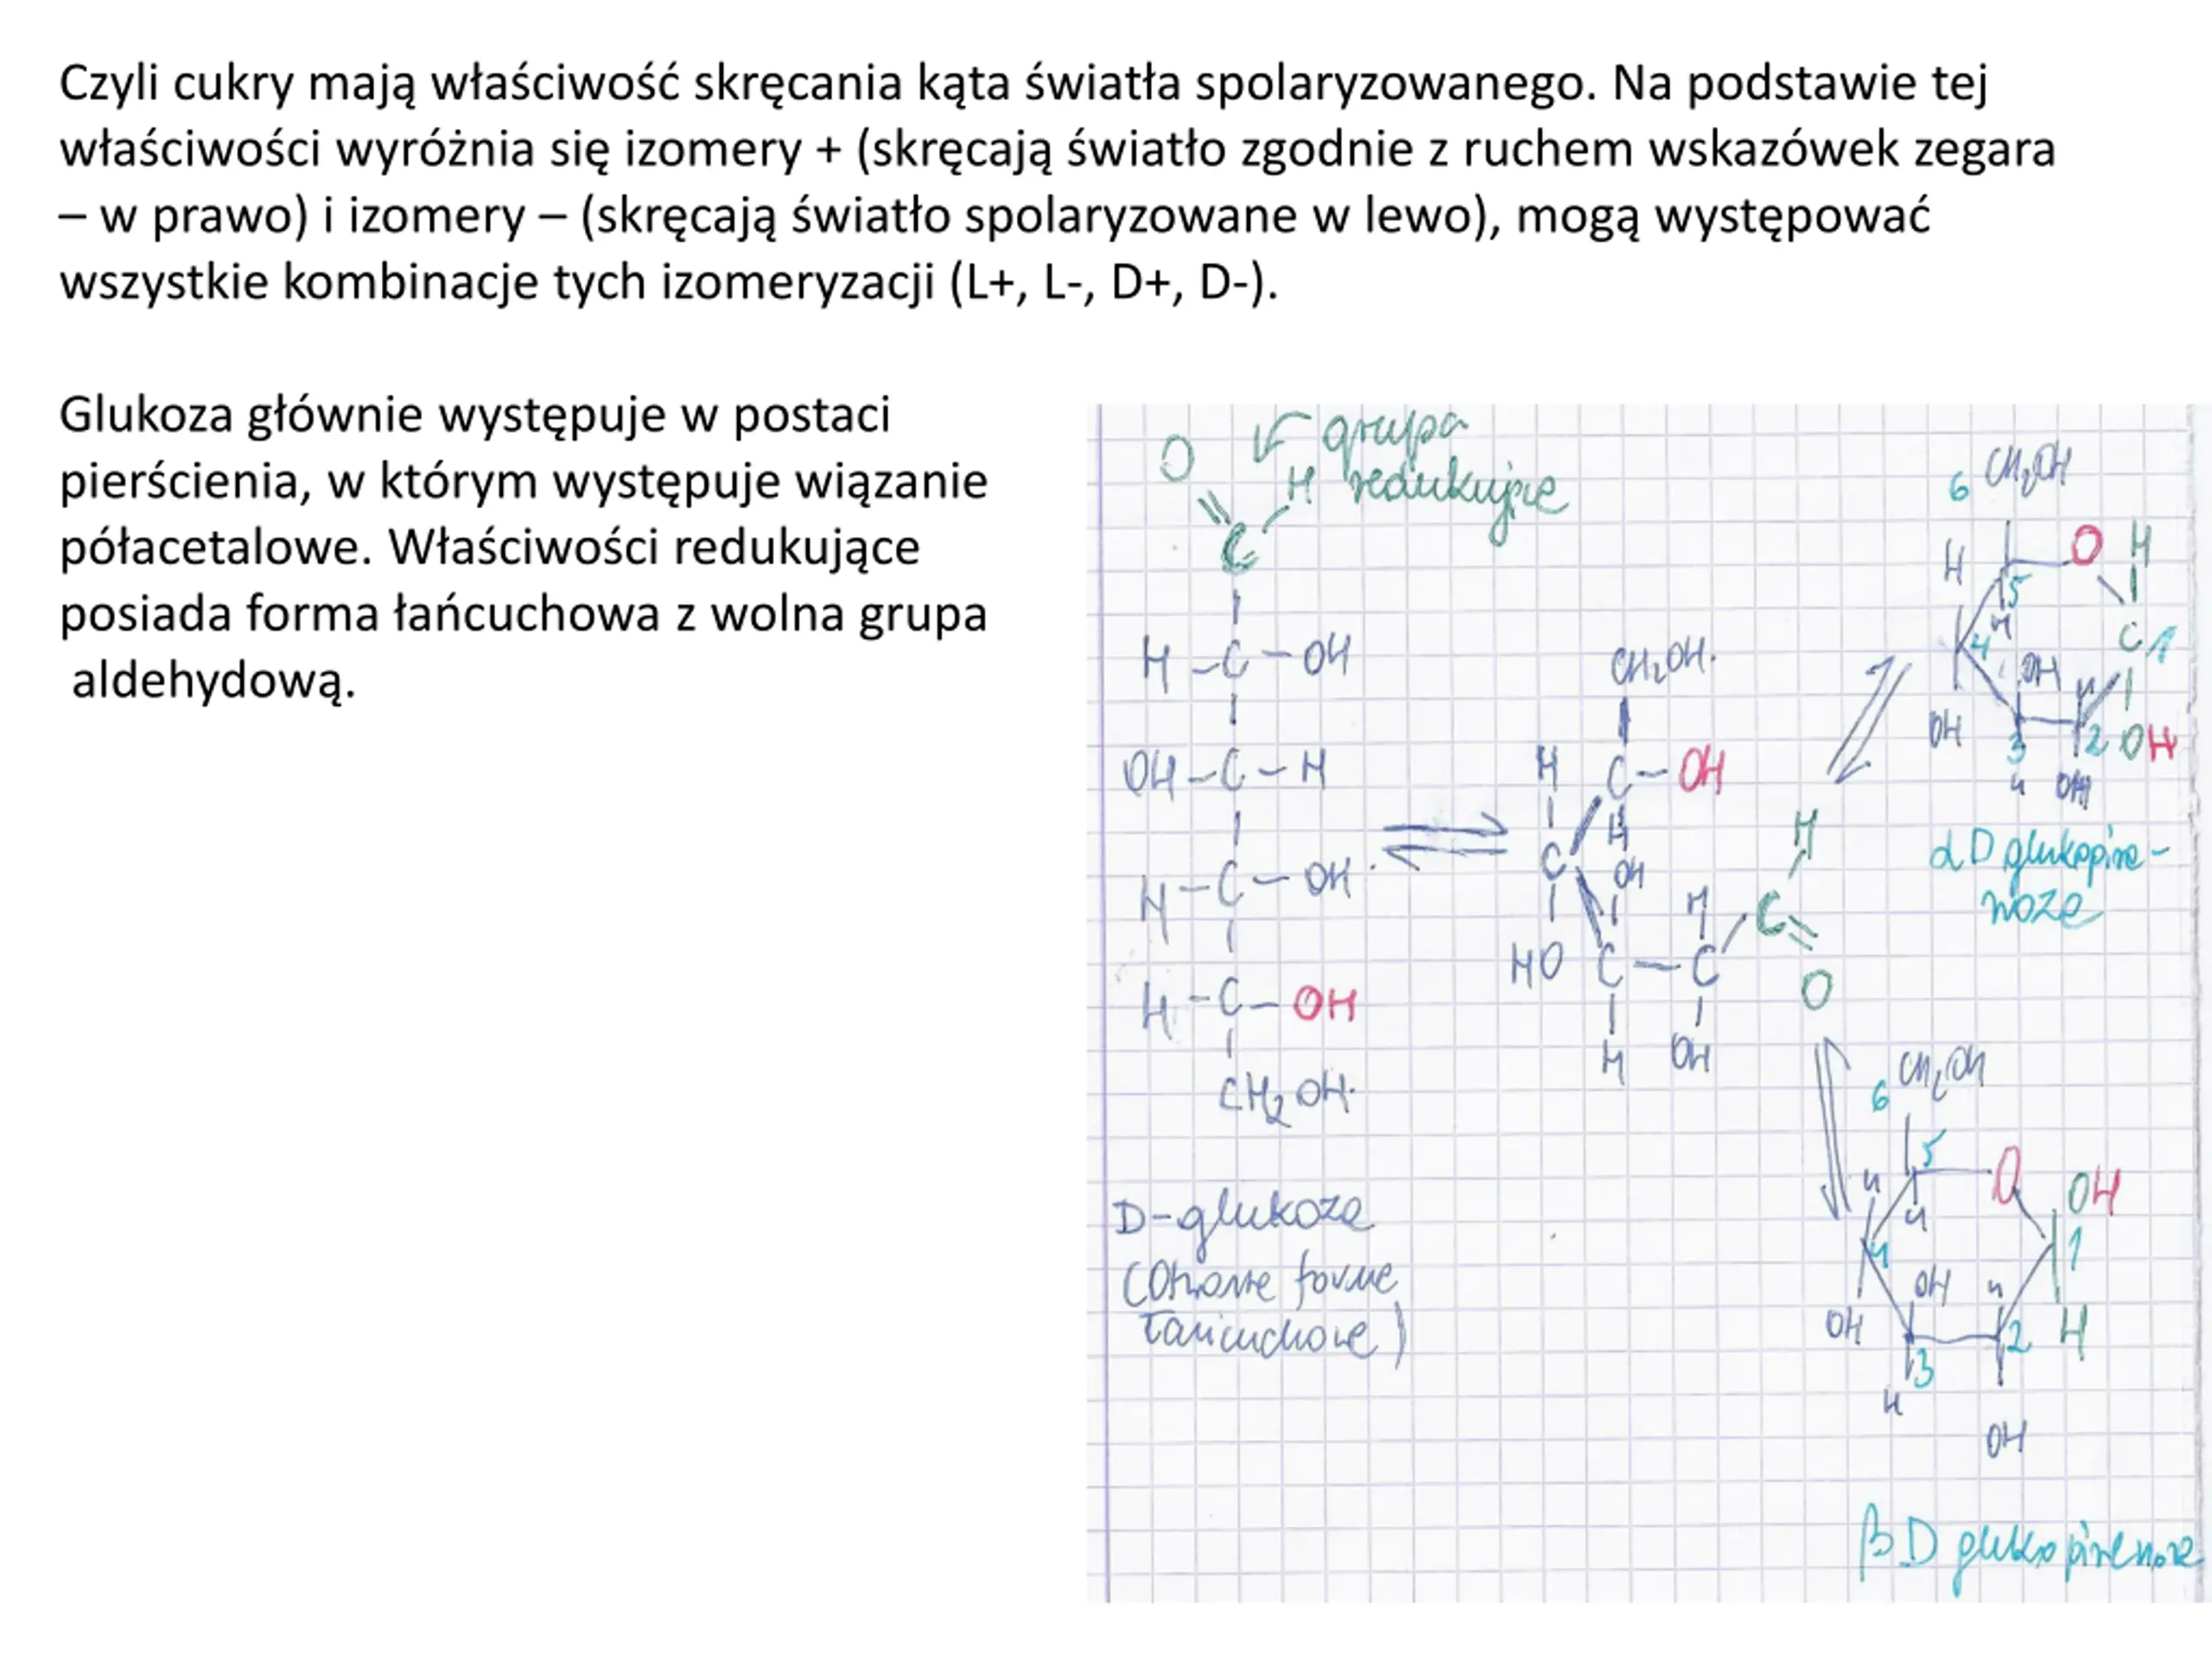 Czyli cukry mają właściwość skręcania kąta światła spolaryzowanego. Na podstawie tej
właściwości wyróżnia się izomery + (skręcają światło zgodnie z ruchem wskazówek zegara
– w prawo) i izomery – (skręcają światło spolaryzowane w lewo), mogą występować
wszystkie kombinacje tych izomeryzacji (L+, L-, D+, D-).
Glukoza głównie występuje w postaci
pierścienia, w którym występuje wiązanie
półacetalowe. Właściwości redukujące
posiada forma łańcuchowa z wolna grupa
aldehydową.
grupa
O H redukująca
C
H - C - OH
OH - C - H
H - C - OH
H - C - OH
CH2OH
D-glukoza
(Otwarta forma
łańcuchowa)
CH2OH
H C - OH
H
C OH H C H
HO C - C O
H OH
6 CH2OH
H 5 O H
H
4 OH H C 1
OH 3 2 OH
H OH
α D glukopira-
noza
6 CH2OH
5 O OH
H H
4 OH H 1
OH 3 2 H
H OH
β D glukopiranoza